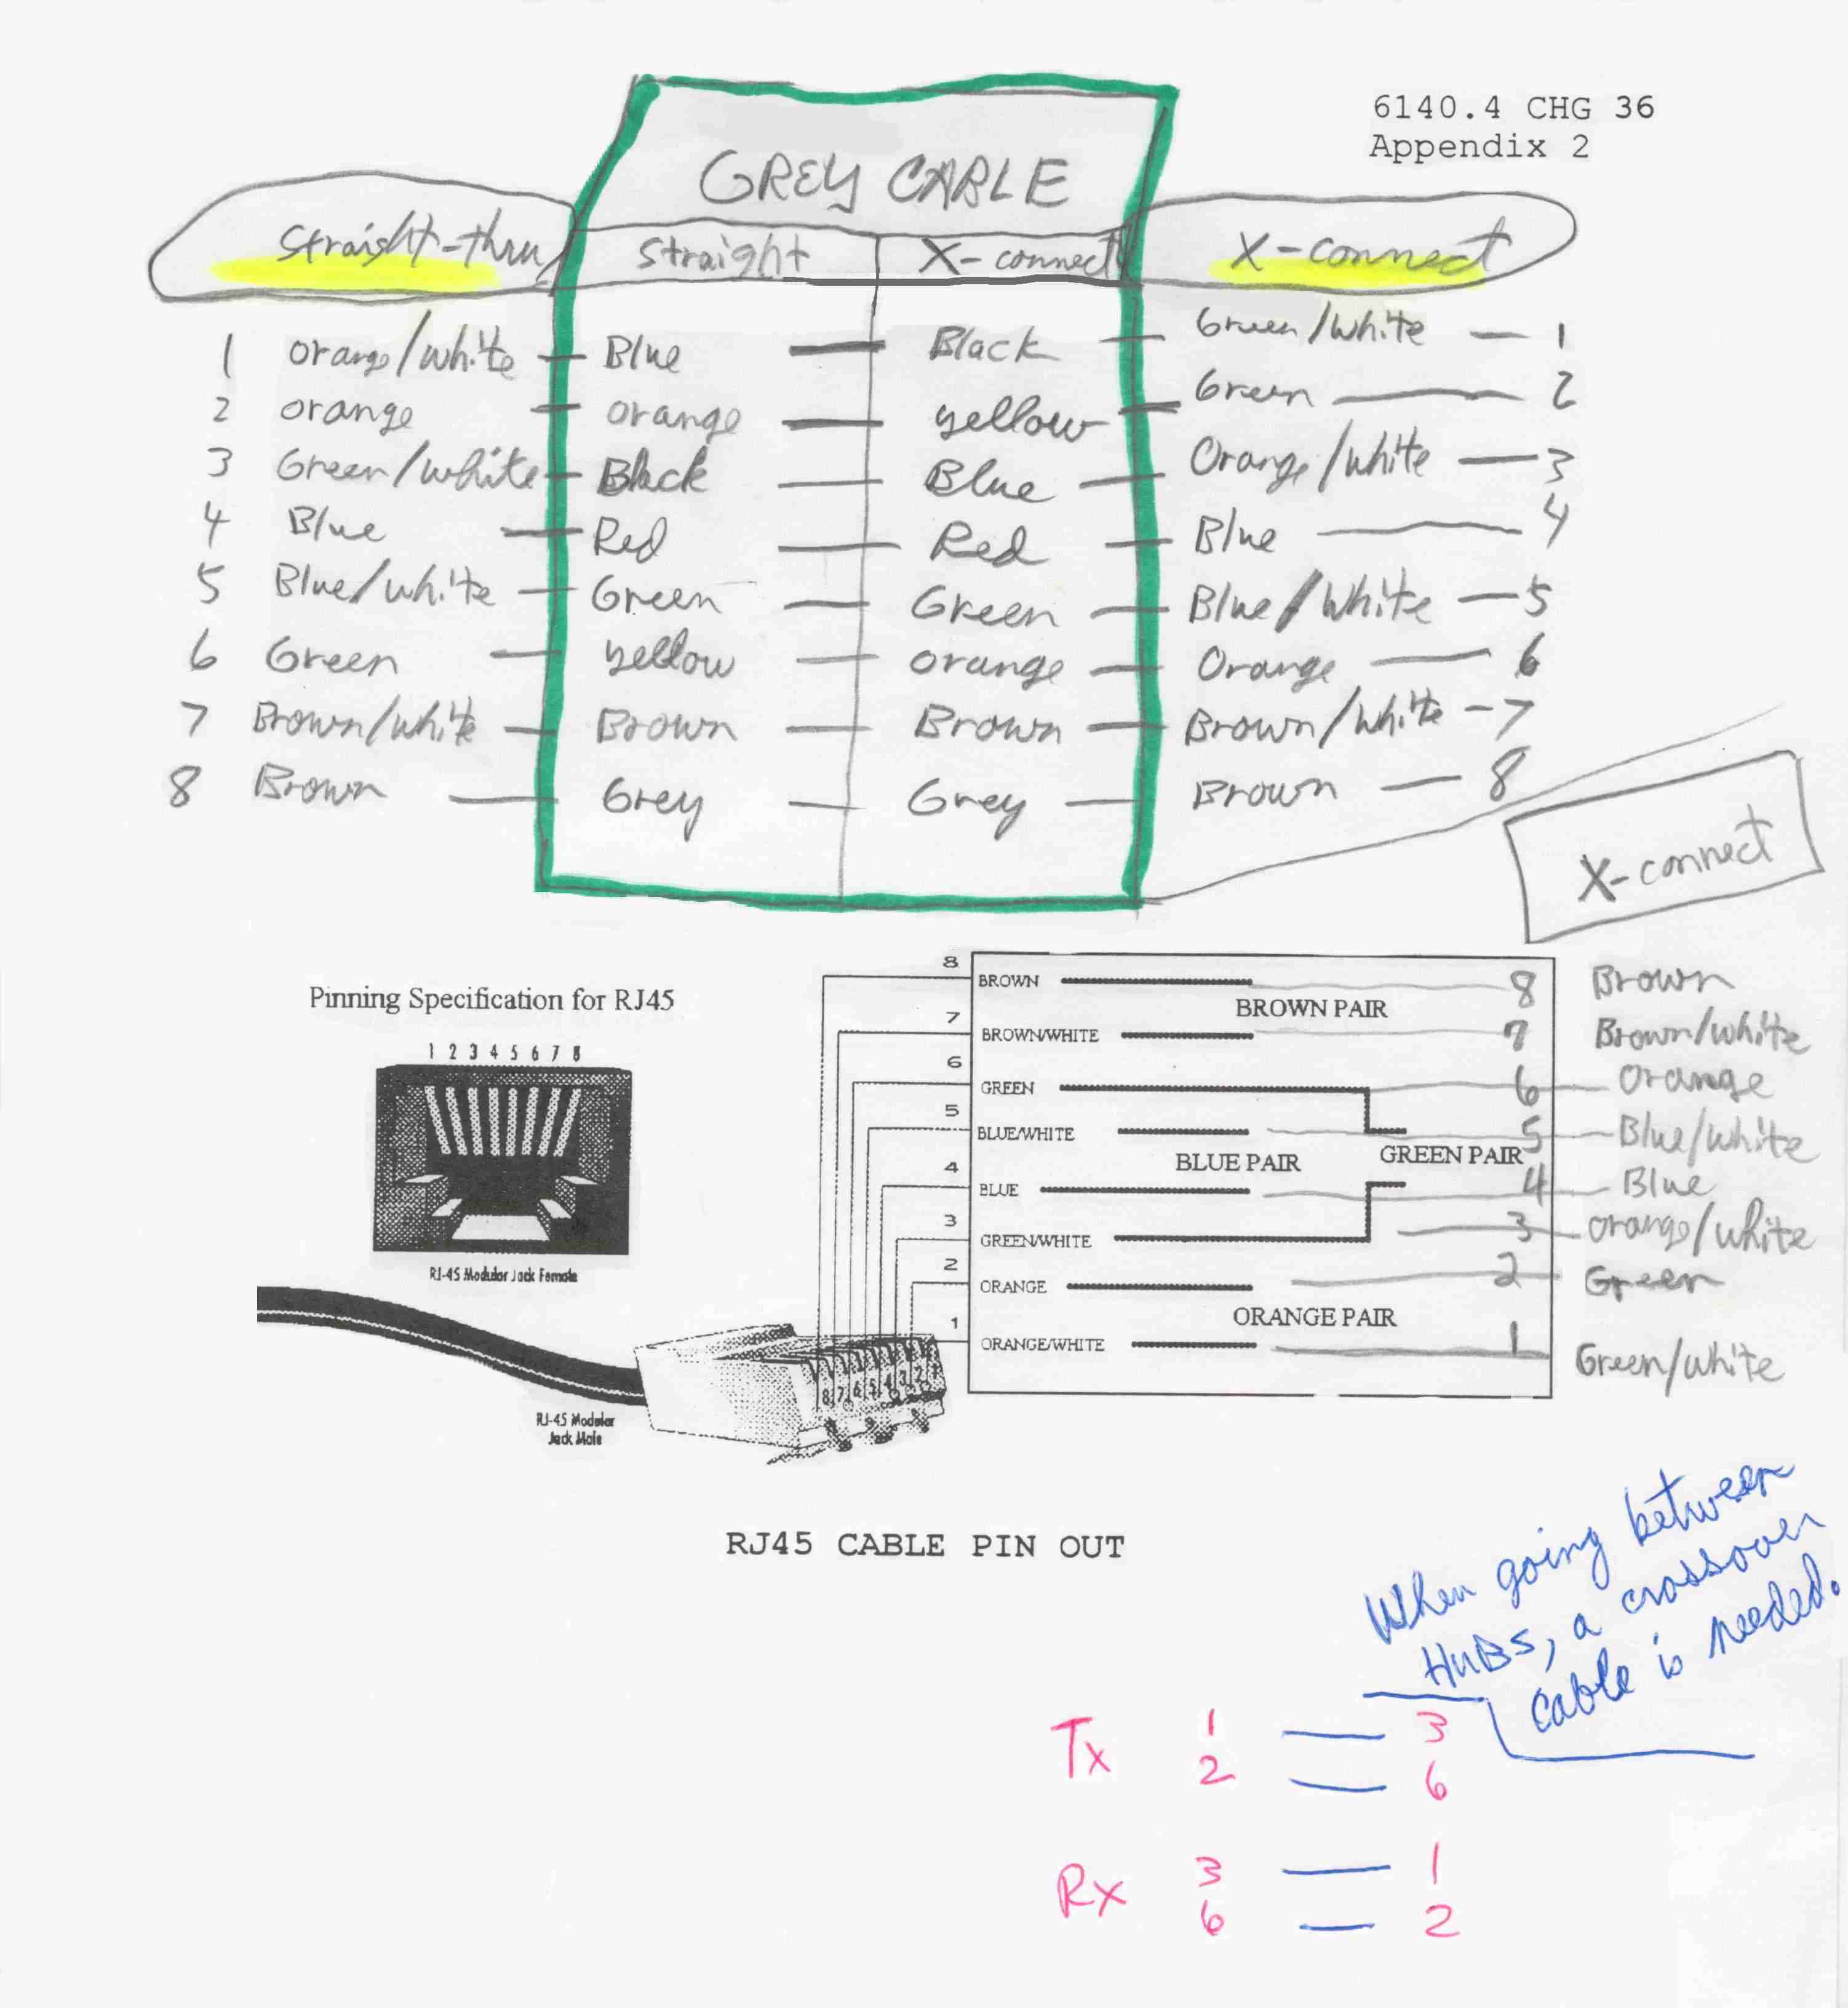 6140.4 CHG 36
Appendix 2
GREY CABLE
Straight-thru straight X-connect X-connect
1 orange/white Blue Black Green/white 1
2 orange orange yellow Green 2
3 Green/white Black Blue Orange/white 3
4 Blue Red Red Blue 4
5 Blue/white Green Green Blue/White 5
6 Green yellow orange Orange 6
7 Brown/white Brown Brown Brown/white 7
8 Brown Grey Grey Brown 8
X-connect
Pinning Specification for RJ45
1 2 3 4 5 6 7 8
RJ-45 Modular Jack Female
RJ-45 Modular
Jack Male
8 7 6 5 4 3 2 1
8 BROWN 8 Brown
BROWN PAIR
7 BROWN/WHITE 7 Brown/white
6 GREEN 6 Orange
5 BLUE/WHITE 5 Blue/white
BLUE PAIR GREEN PAIR
4 BLUE 4 Blue
3 GREEN/WHITE 3 orange/white
2 ORANGE 2 Green
ORANGE PAIR
1 ORANGE/WHITE 1 Green/white
RJ45 CABLE PIN OUT
When going between
HUBS, a crossover
cable is needed.
Tx 1 3
2 6
Rx 3 1
6 2